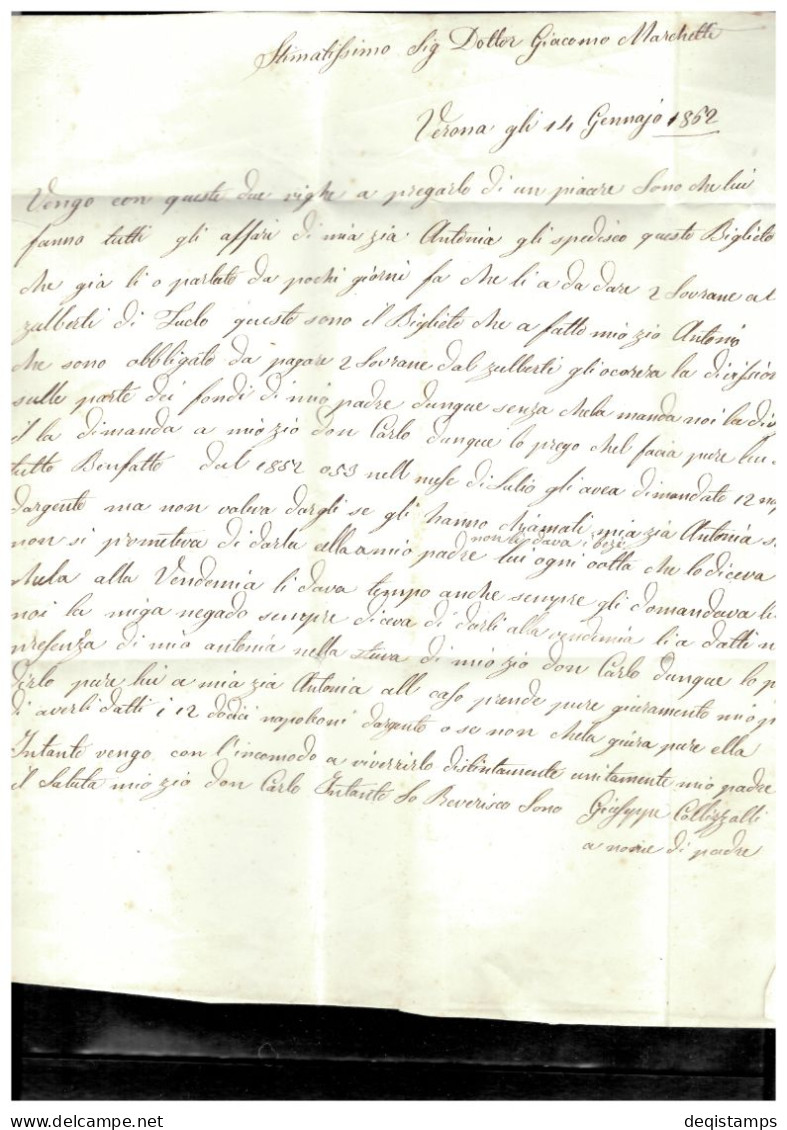 Stimatissimo Sig Dottor Giacomo Marchetti
Verona gli 14 Gennajo 1862
Vengo con queste due righe a pregarlo di un piacere Sono che lui
fanno tutti gli affari di mia zia Antonia gli spedisco questo Biglieto
che gia li o parlato da pochi giorni fa che li a da dare 2 Sovrane al
zulberti di questo sono il Biglieto che a fatto mio zio Antonio
che sono obbligato da pagare 2 Sovrane dal zulberti gli ocorera la divission
sulle parte dei fondi di mio padre dunque senza chela manda noi la div
il la dimanda a mio zio don Carlo dunque lo prego chel facia pure lui
tutto Benfatto dal 1852 o 53 nell mese di Lulio gli avea dimandato 12 nap
dargento ma non voleva dargli se gli hanno chiamati mia zia Antonia
non si prometeva di darla ella a mio padre lui ogni volta che lo diceva
non le dava i bezi
chela alla Vendemia li dava tempo anche sempre gli domandava
noi la miga negado sempre diceva di darli alla vendemia li a datti
presenza di mio antonia nella stuva di mio zio don Carlo dunque lo p
dirlo pure lui a mia zia Antonia all caso prende pure giuramento mio p
di averli datti i 12 dodici napoleoni dargento o se non chela giura pure ella
Intanto vengo con l'incomodo a riverirlo distintamente unitamente mio padre
il Saluta mio zio don Carlo Intanto Lo Reverisco Sono Giuseppe
a nome di padre
deqistamps